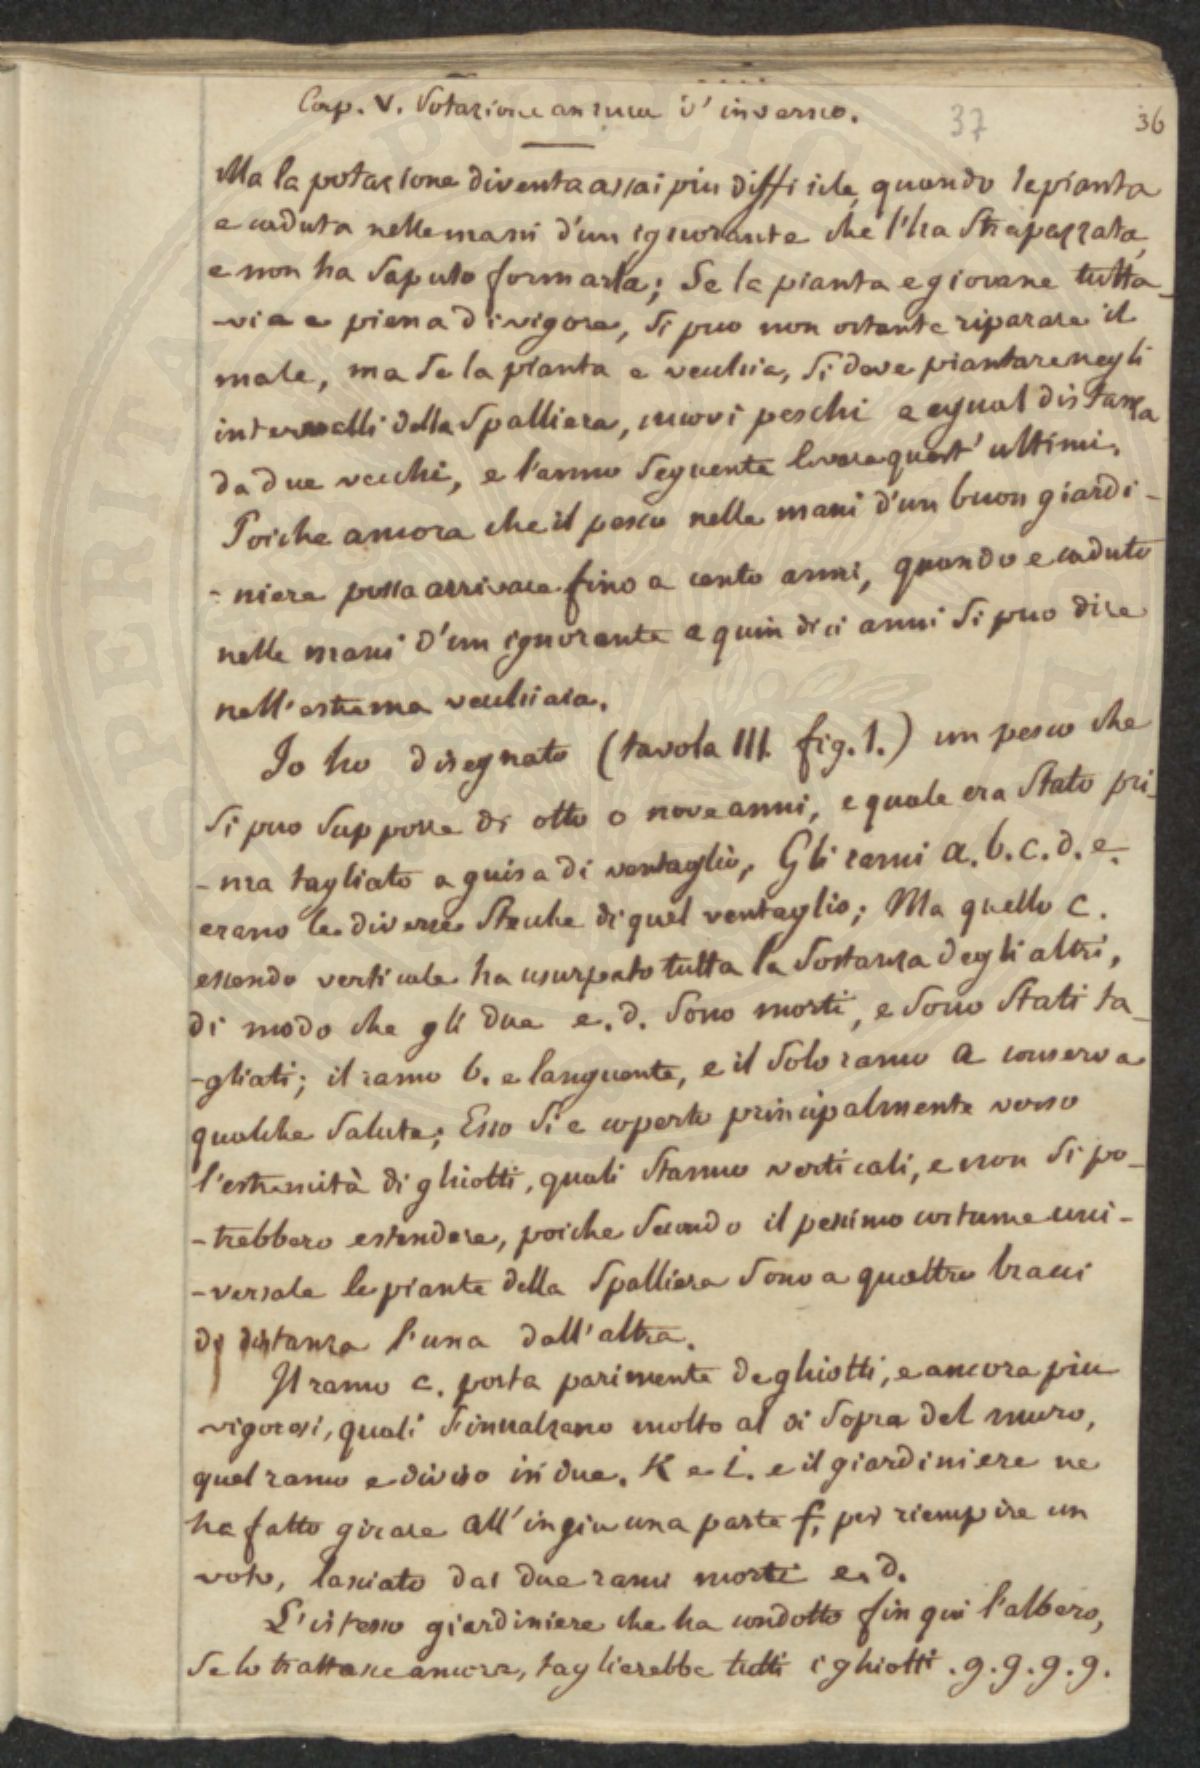 Cap. V. Potazione ancora d'inverno.
37
36
Ma la potazione diventa assai piu difficile, quando la pianta
e caduta nelle mani d'un ignorante che l'ha strapazzata,
e non ha saputo formarla; Se la pianta e giovane tutta-
-via e piena di vigore, si puo non ostante riparare il
male, ma se la pianta e vecchia, si deve piantare negli
intervalli della Spalliera, nuovi peschi a egual distanza
da due vecchi, e l'anno seguente levare quest'ultimi.
Poiche ancora che il pesco nelle mani d'un buon giardi-
-niere possa arrivare fino a cento anni, quando e caduto
nelle mani d'un ignorante a quindici anni si puo dire
nell'estrema vecchiaia.
Io ho disegnato (tavola III. fig. 1.) un pesco che
si puo supporre di otto o nove anni, e quale era stato pri-
-ma tagliato a guisa di ventaglio. Gli rami a. b. c. d. e.
erano le diverse stecche di quel ventaglio; Ma quello c.
essendo verticale ha usurpato tutta la sostanza degli altri,
di modo che gli due e. d. sono morti, e sono stati ta-
-gliati; il ramo b. e languente, e il solo ramo a conserva
qualche salute; Esso si e coperto principalmente verso
l'estremità di ghiotti, quali stanno verticali, e non si po-
-trebbero estendere, poiche secondo il pessimo costume uni-
-versale le piante della Spalliera sono a quattro bracci
di distanza l'una dall'altra.
Il ramo c. porta parimente de ghiotti, e ancora piu
vigorosi, quali s'innalzano molto al di sopra del muro,
quel ramo e diviso in due. K e i. e il giardiniere ne
ha fatto girare all'ingiu una parte f, per riempire un
voto, lasciato dai due rami morti e. d.
L'istesso giardiniere che ha condotto fin qui l'albero,
se lo trattasse ancora, taglierebbe tutti i ghiotti .g.g.g.g.